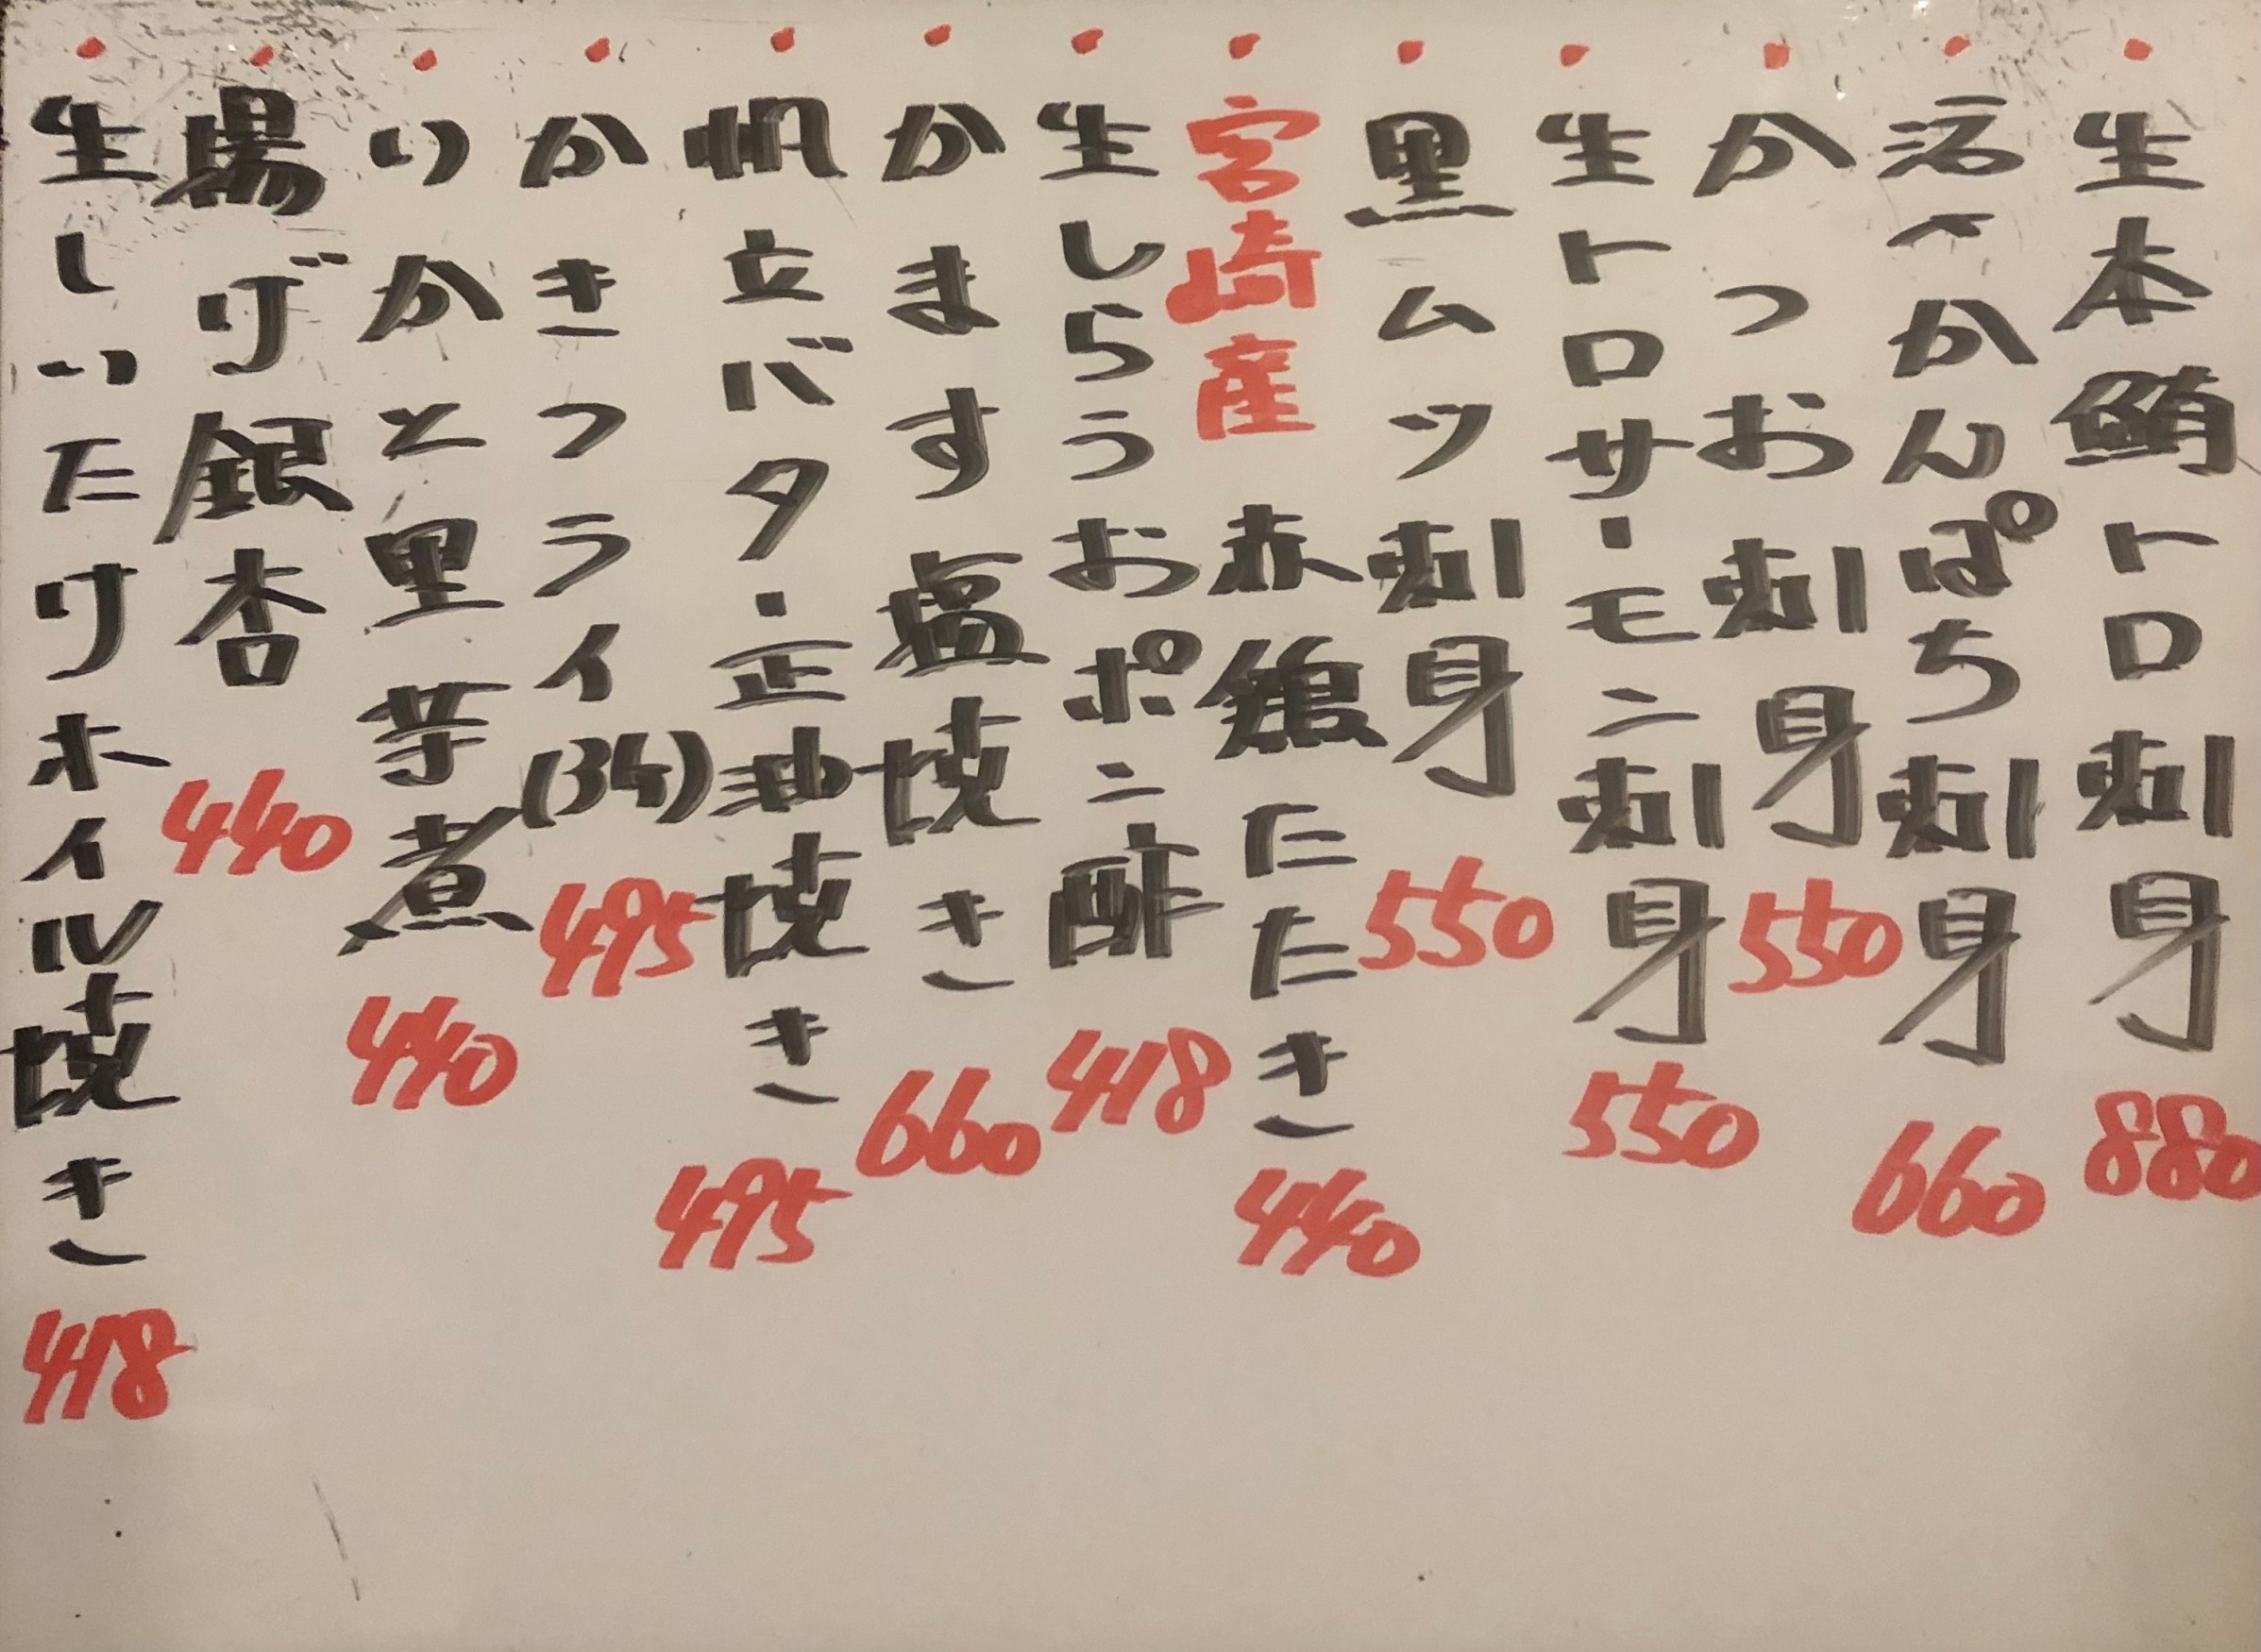 ・生本鮪トロ刺身 880
・活〆かんぱち刺身 660
・かつお刺身 550
・生トロサーモン刺身 550
・黒ムツ刺身 550
・宮崎産 赤鶏たたき 440
・生しらうおポン酢 418
・かます塩焼き 660
・帆立バター正油焼き 495
・かきフライ(3ケ) 495
・いかと里芋煮 440
・揚げ銀杏 440
・生しいたけホイル焼き 418